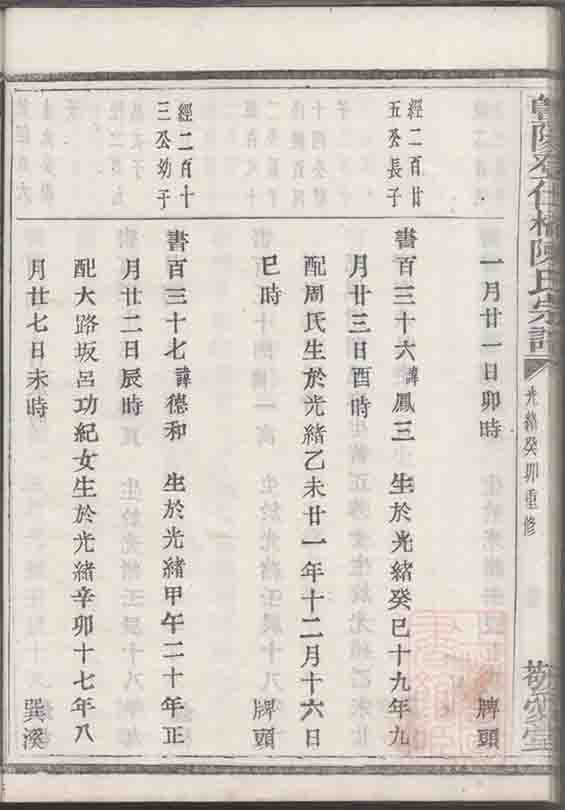 陳氏宗譜
光緒癸卯重修
一月廿一日卯時
牌頭
經二百廿
五公長子
書百三十六諱鳳三 生於光緒癸巳十九年九
月廿三日酉時
配周氏生於光緒乙未廿一年十二月十六日
巳時
牌頭
經二百十
三公幼子
書百三十七諱德和 生於光緒甲午二十年正
月廿二日辰時
配大路坂呂功紀女生於光緒辛卯十七年八
月廿七日未時
巽溪